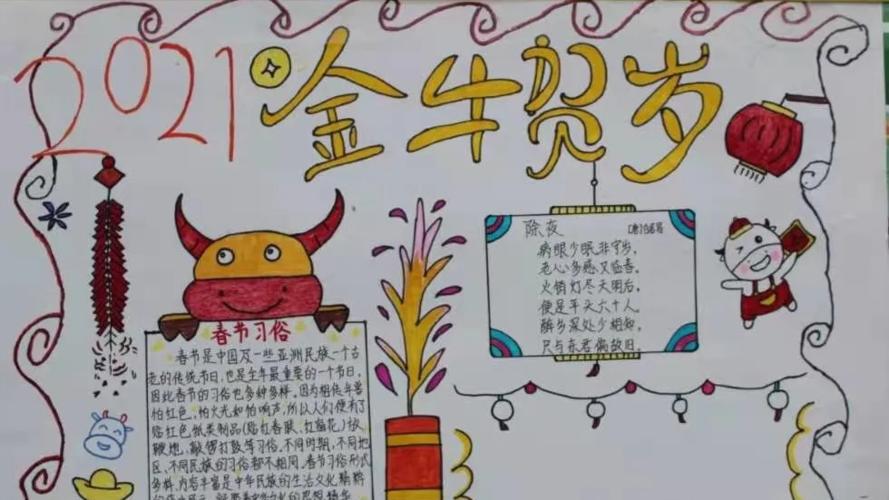 2021 金牛贺岁
除夜 [唐]白居易
病眼少眠非守岁，
老心多感又临春。
火销灯尽天明后，
便是平头六十人。
醉乡深处少相知，
只与东君偏故旧。
春节习俗
春节是中国及一些亚洲民族一个古
老的传统节日，也是全年最重要的一个节日，
因此春节的习俗也多种多样。因为相传年兽
怕红色、怕火光和怕响声，所以人们便有了
贴红色纸类制品(贴红春联、红窗花)放
鞭炮、敲锣打鼓等习俗，不同时期、不同地
区、不同民族的习俗都不相同。春节习俗形式
多样、内容丰富是中华民族的生活文化精髓